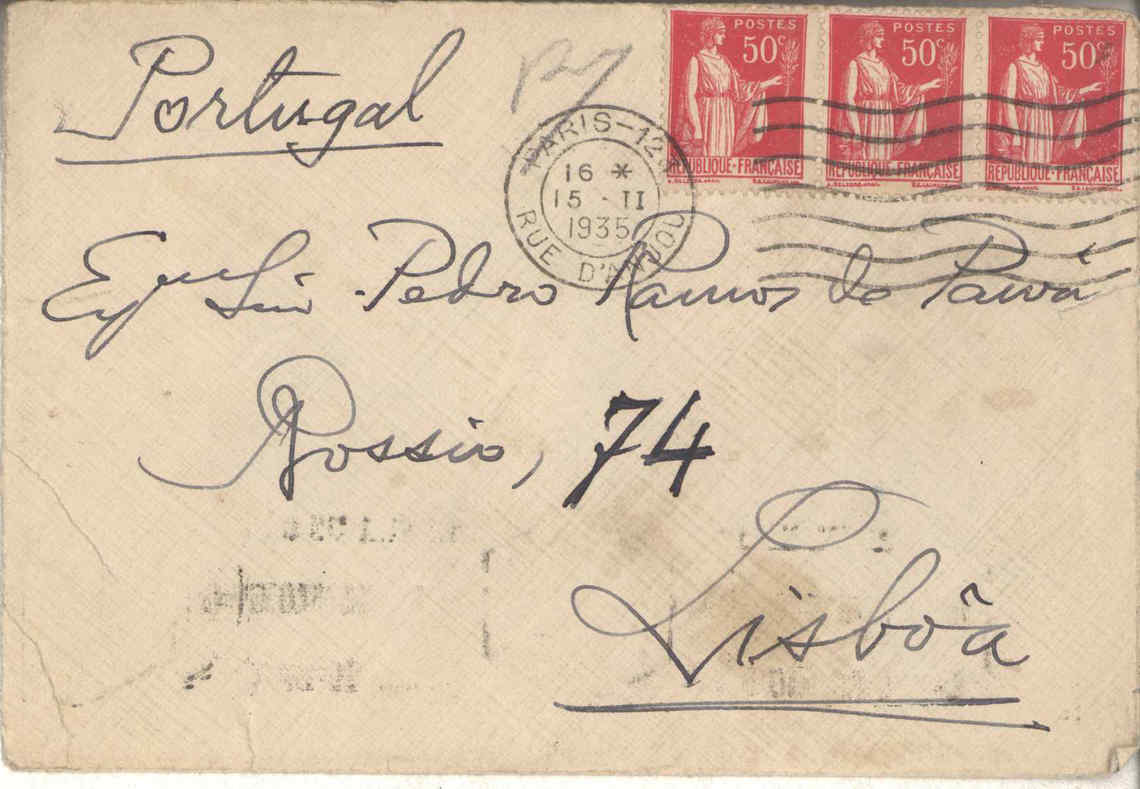 Portugal
POSTES 50c RÉPUBLIQUE-FRANÇAISE
POSTES 50c RÉPUBLIQUE-FRANÇAISE
POSTES 50c RÉPUBLIQUE-FRANÇAISE
PARIS-12
16 *
15 - II
1935
RUE D'ANJOU
Exmo Snr Pedro Ramos de Paiva
Rossio, 74
Lisbôa